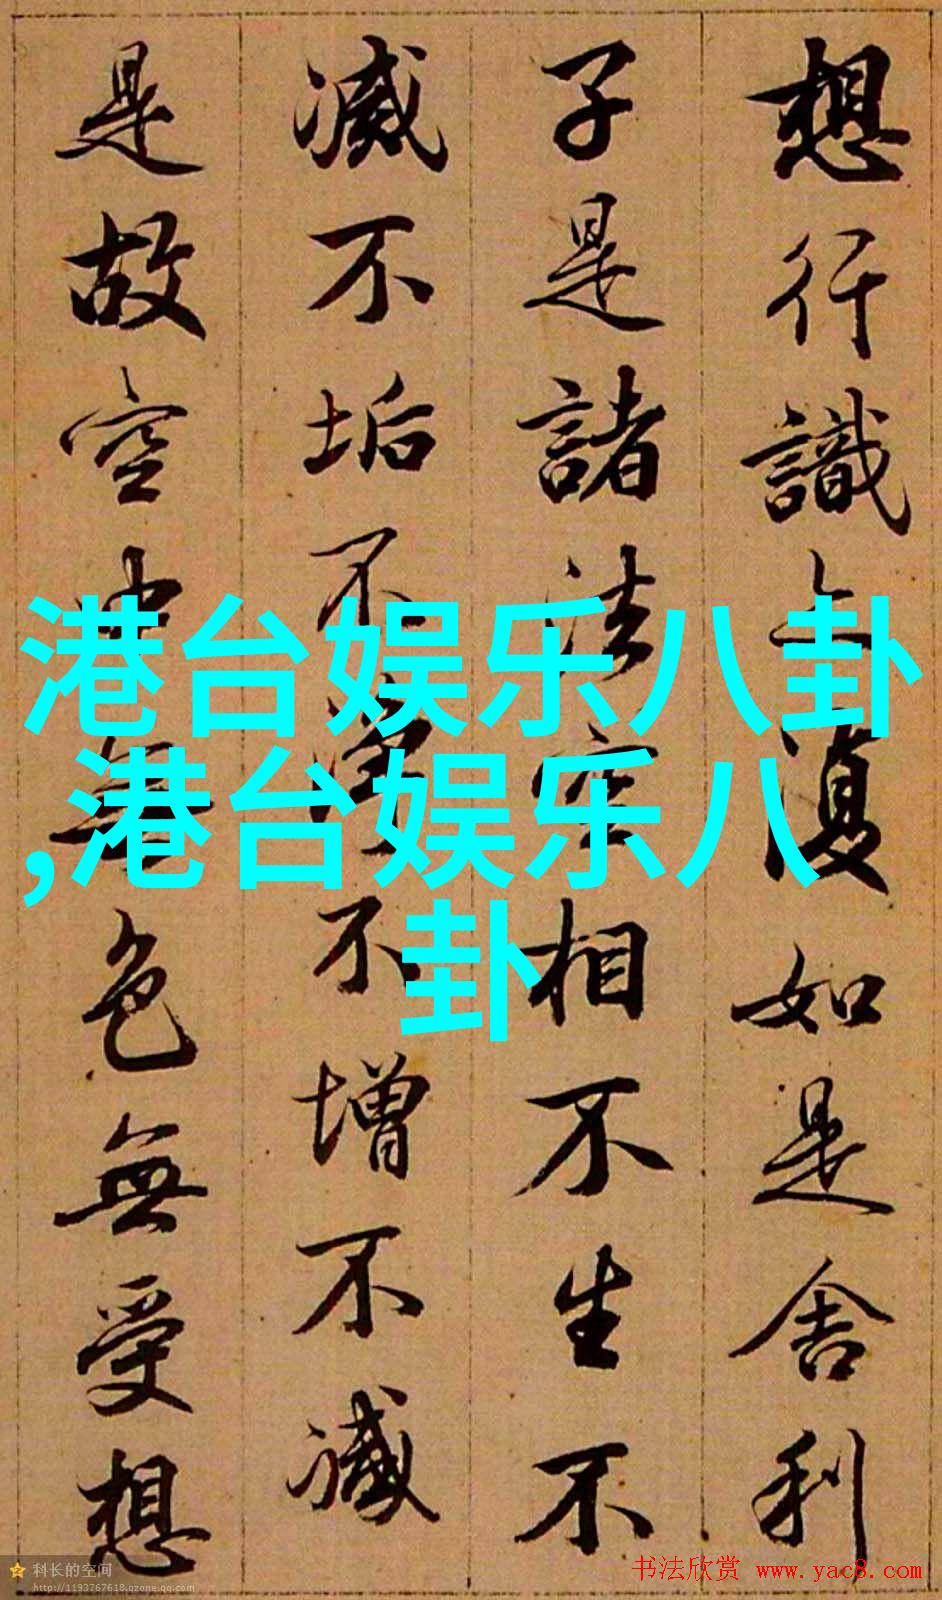 想行識亦復如是舍利
子是諸法空相不生不
滅不垢不淨不增不減
是故空中無色無受想
港台娱乐八卦
,港台娱乐八
卦
科长的空间
http://1193767618.qzone.qq.com
书法欣赏 www.yac8.com